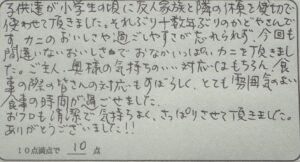 子供達が小学生の頃に友人家族と隣の棟を貸切で
使わせて頂きました。それぶり十数年ぶりのかどやさんで
す。カニのおいしさや過ごしやすさが忘れられず、今回も
間違いないおいしさで おなかいっぱい カニを頂きまし
た。ご主人、奥様の気持ちのいい対応はもちろん、食
事の際の皆さんの対応もすばらしく、とても雰囲気のよい
食事の時間が過ごせました。
おフロも清潔で気持ちよく、さっぱりさせて頂きました。
ありがとうございました!!
10点満点で 10 点